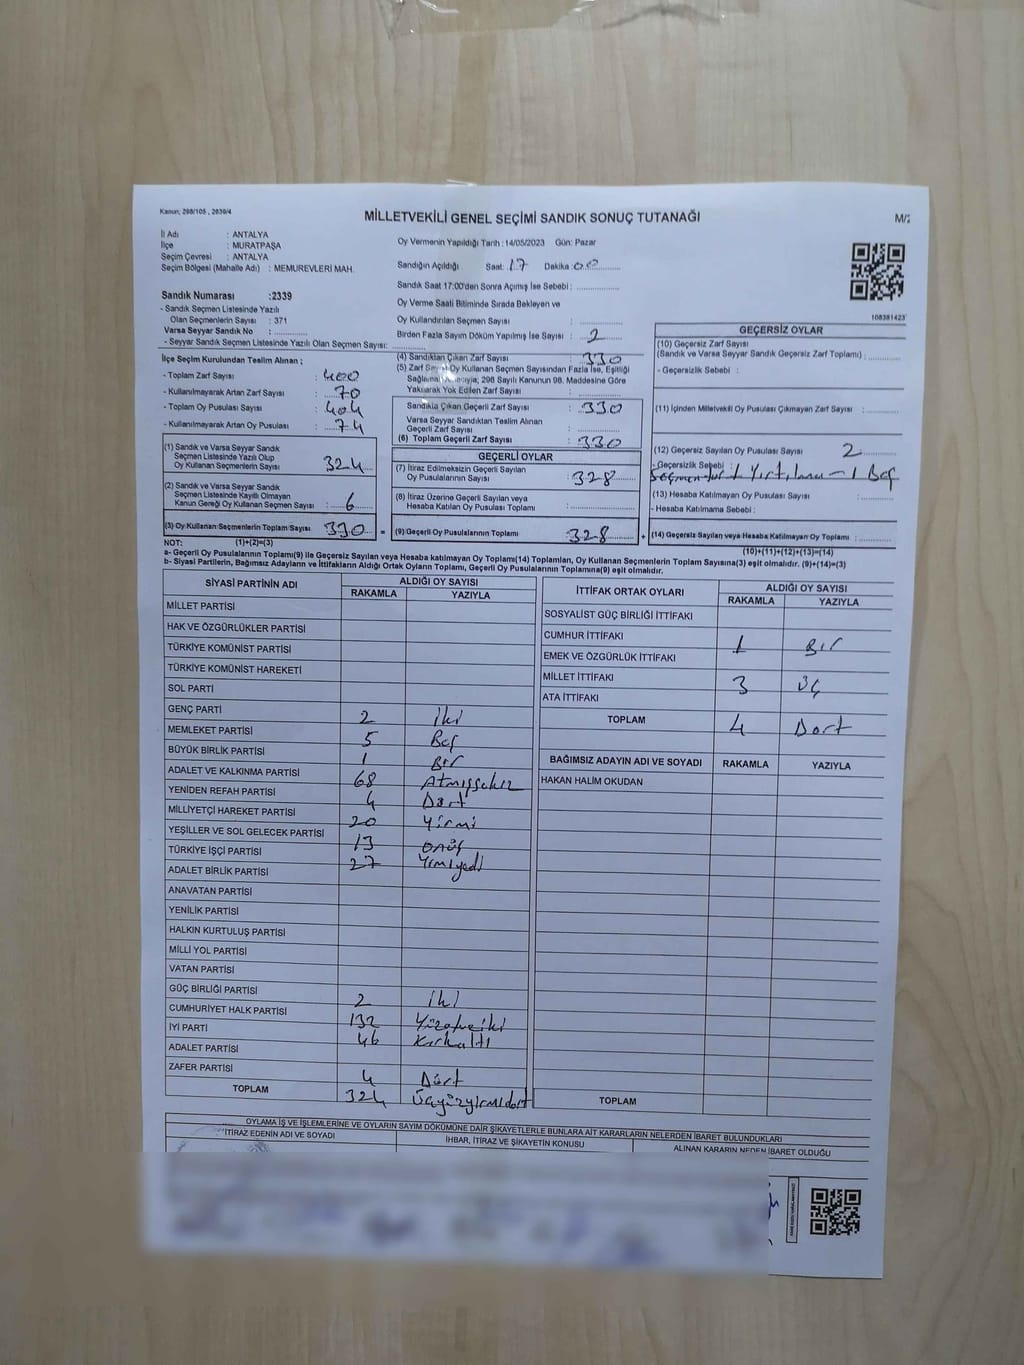 Kanun; 298/105 , 2839/4
MİLLETVEKİLİ GENEL SEÇİMİ SANDIK SONUÇ TUTANAĞI
M/2
İl Adı : ANTALYA
İlçe : MURATPAŞA
Seçim Çevresi : ANTALYA
Seçim Bölgesi (Mahalle Adı) : MEMUREVLERİ MAH.
Oy Vermenin Yapıldığı Tarih : 14/05/2023 Gün: Pazar
Sandığın Açıldığı Saat: 17 Dakika: 00
Sandık Saat 17:00'den Sonra Açımış İse Sebebi :
Oy Verme Saati Bitiminde Sırada Bekleyen ve
Oy Kullandırılan Seçmen Sayısı :
Birden Fazla Sayım Döküm Yapılmış İse Sayısı : 2
108381423
Sandık Numarası : 2339
- Sandık Seçmen Listesinde Yazılı
Olan Seçmenlerin Sayısı : 371
Varsa Seyyar Sandık No :
- Seyyar Sandık Seçmen Listesinde Yazılı Olan Seçmen Sayısı:
İlçe Seçim Kurulundan Teslim Alınan ;
- Toplam Zarf Sayısı : 400
- Kullanılmayarak Artan Zarf Sayısı : 70
- Toplam Oy Pusulası Sayısı : 404
- Kullanılmayarak Artan Oy Pusulası : 74
(1) Sandık ve Varsa Seyyar Sandık
Seçmen Listesinde Yazılı Olup
Oy Kullanan Seçmenlerin Sayısı : 324
(2) Sandık ve Varsa Seyyar Sandık
Seçmen Listesinde Kayıtlı Olmayan
Kanun Gereği Oy Kullanan Seçmen Sayısı : 6
(3) Oy Kullanan Seçmenlerin Toplam Sayısı : 330
(4) Sandıktan Çıkan Zarf Sayısı : 330
(5) Zarf Sayısı Oy Kullanan Seçmen Sayısından Fazla İse, Eşitliği
298 Sayılı Kanunun 98. Maddesine Göre
Yakılarak Yok Edilen Zarf Sayısı :
Sandıkta Çıkan Geçerli Zarf Sayısı : 330
Varsa Seyyar Sandıktan Teslim Alınan
Geçerli Zarf Sayısı :
(6) Toplam Geçerli Zarf Sayısı : 330
GEÇERLİ OYLAR
(7) İtiraz Edilmeksizin Geçerli Sayılan
Oy Pusulalarının Sayısı : 328
(8) İtiraz Üzerine Geçerli Sayılan veya
Hesaba Katılan Oy Pusulası Sayısı :
(9) Geçerli Oy Pusulalarının Toplamı : 328
GEÇERSİZ OYLAR
(10) Geçersiz Zarf Sayısı
(Sandık ve Varsa Seyyar Sandık Geçersiz Zarf Toplamı) :
- Geçersizlik Sebebi :
(11) İçinden Milletvekili Oy Pusulası Çıkmayan Zarf Sayısı :
(12) Geçersiz Sayılan Oy Pusulası Sayısı : 2
- Geçersizlik Sebebi : 1 Yırtılma - 1
(13) Hesaba Katılmayan Oy Pusulası Sayısı :
- Hesaba Katılmama Sebebi :
(14) Geçersiz Sayılan veya Hesaba Katılmayan Oy Toplamı :
NOT: (1)+(2)=(3)
(10)+(11)+(12)+(13)=(14)
a- Geçerli Oy Pusulalarının Toplamı(9) ile Geçersiz Sayılan veya Hesaba katılmayan Oy Toplamı(14) Toplamları, Oy Kullanan Seçmenlerin Toplam Sayısına(3) eşit olmalıdır. (9)+(14)=(3)
b- Siyasi Partilerin, Bağımsız Adayların ve İttifakların Aldığı Ortak Oyların Toplamı, Geçerli Oy Pusulalarının Toplamına(9) eşit olmalıdır.
SİYASİ PARTİNİN ADI ALDIĞI OY SAYISI
RAKAMLA YAZIYLA
MİLLET PARTİSİ
HAK VE ÖZGÜRLÜKLER PARTİSİ
TÜRKİYE KOMÜNİST PARTİSİ
TÜRKİYE KOMÜNİST HAREKETİ
SOL PARTİ
GENÇ PARTİ 2 İki
MEMLEKET PARTİSİ 5 Beş
BÜYÜK BİRLİK PARTİSİ 1 Bir
ADALET VE KALKINMA PARTİSİ 68 Atmışsekiz
YENİDEN REFAH PARTİSİ 4 Dört
MİLLİYETÇİ HAREKET PARTİSİ 20 Yirmi
YEŞİLLER VE SOL GELECEK PARTİSİ 13 Onüç
TÜRKİYE İŞÇİ PARTİSİ 27 Yirmiyedi
ADALET BİRLİK PARTİSİ
ANAVATAN PARTİSİ
YENİLİK PARTİSİ
HALKIN KURTULUŞ PARTİSİ
MİLLİ YOL PARTİSİ
VATAN PARTİSİ
GÜÇ BİRLİĞİ PARTİSİ 2 İki
CUMHURİYET HALK PARTİSİ 132 Yüzotuziki
İYİ PARTİ 46 Kırkaltı
ADALET PARTİSİ
ZAFER PARTİSİ 4 Dört
TOPLAM 324 Üçyüzyirmidört
İTTİFAK ORTAK OYLARI ALDIĞI OY SAYISI
RAKAMLA YAZIYLA
SOSYALİST GÜÇ BİRLİĞİ İTTİFAKI
CUMHUR İTTİFAKI 1 Bir
EMEK VE ÖZGÜRLÜK İTTİFAKI
MİLLET İTTİFAKI 3 Üç
ATA İTTİFAKI
TOPLAM 4 Dört
BAĞIMSIZ ADAYIN ADI VE SOYADI RAKAMLA YAZIYLA
HAKAN HALİM OKUDAN
TOPLAM
OYLAMA İŞ VE İŞLEMLERİNE VE OYLARIN SAYIM DÖKÜMÜNE DAİR ŞİKAYETLERLE BUNLARA AİT KARARLARIN NELERDEN İBARET BULUNDUKLARI
İTİRAZ EDENİN ADI VE SOYADI İHBAR, İTİRAZ VE ŞİKAYETİN KONUSU ALINAN KARARIN NEDEN İBARET OLDUĞU